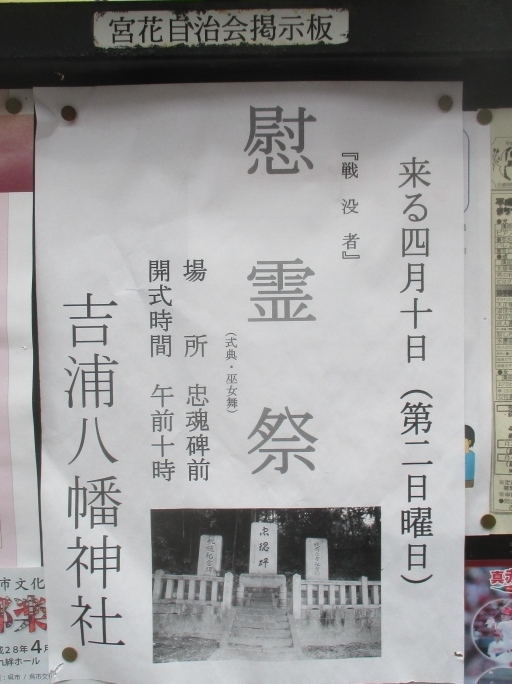 宮花自治会掲示板
来る四月十日（第二日曜日）
『戦没者』
慰霊祭
（式典・巫女舞）
場所 忠魂碑前
開式時間 午前十時
吉浦八幡神社
忠魂碑
市文化
28年4月
ホール